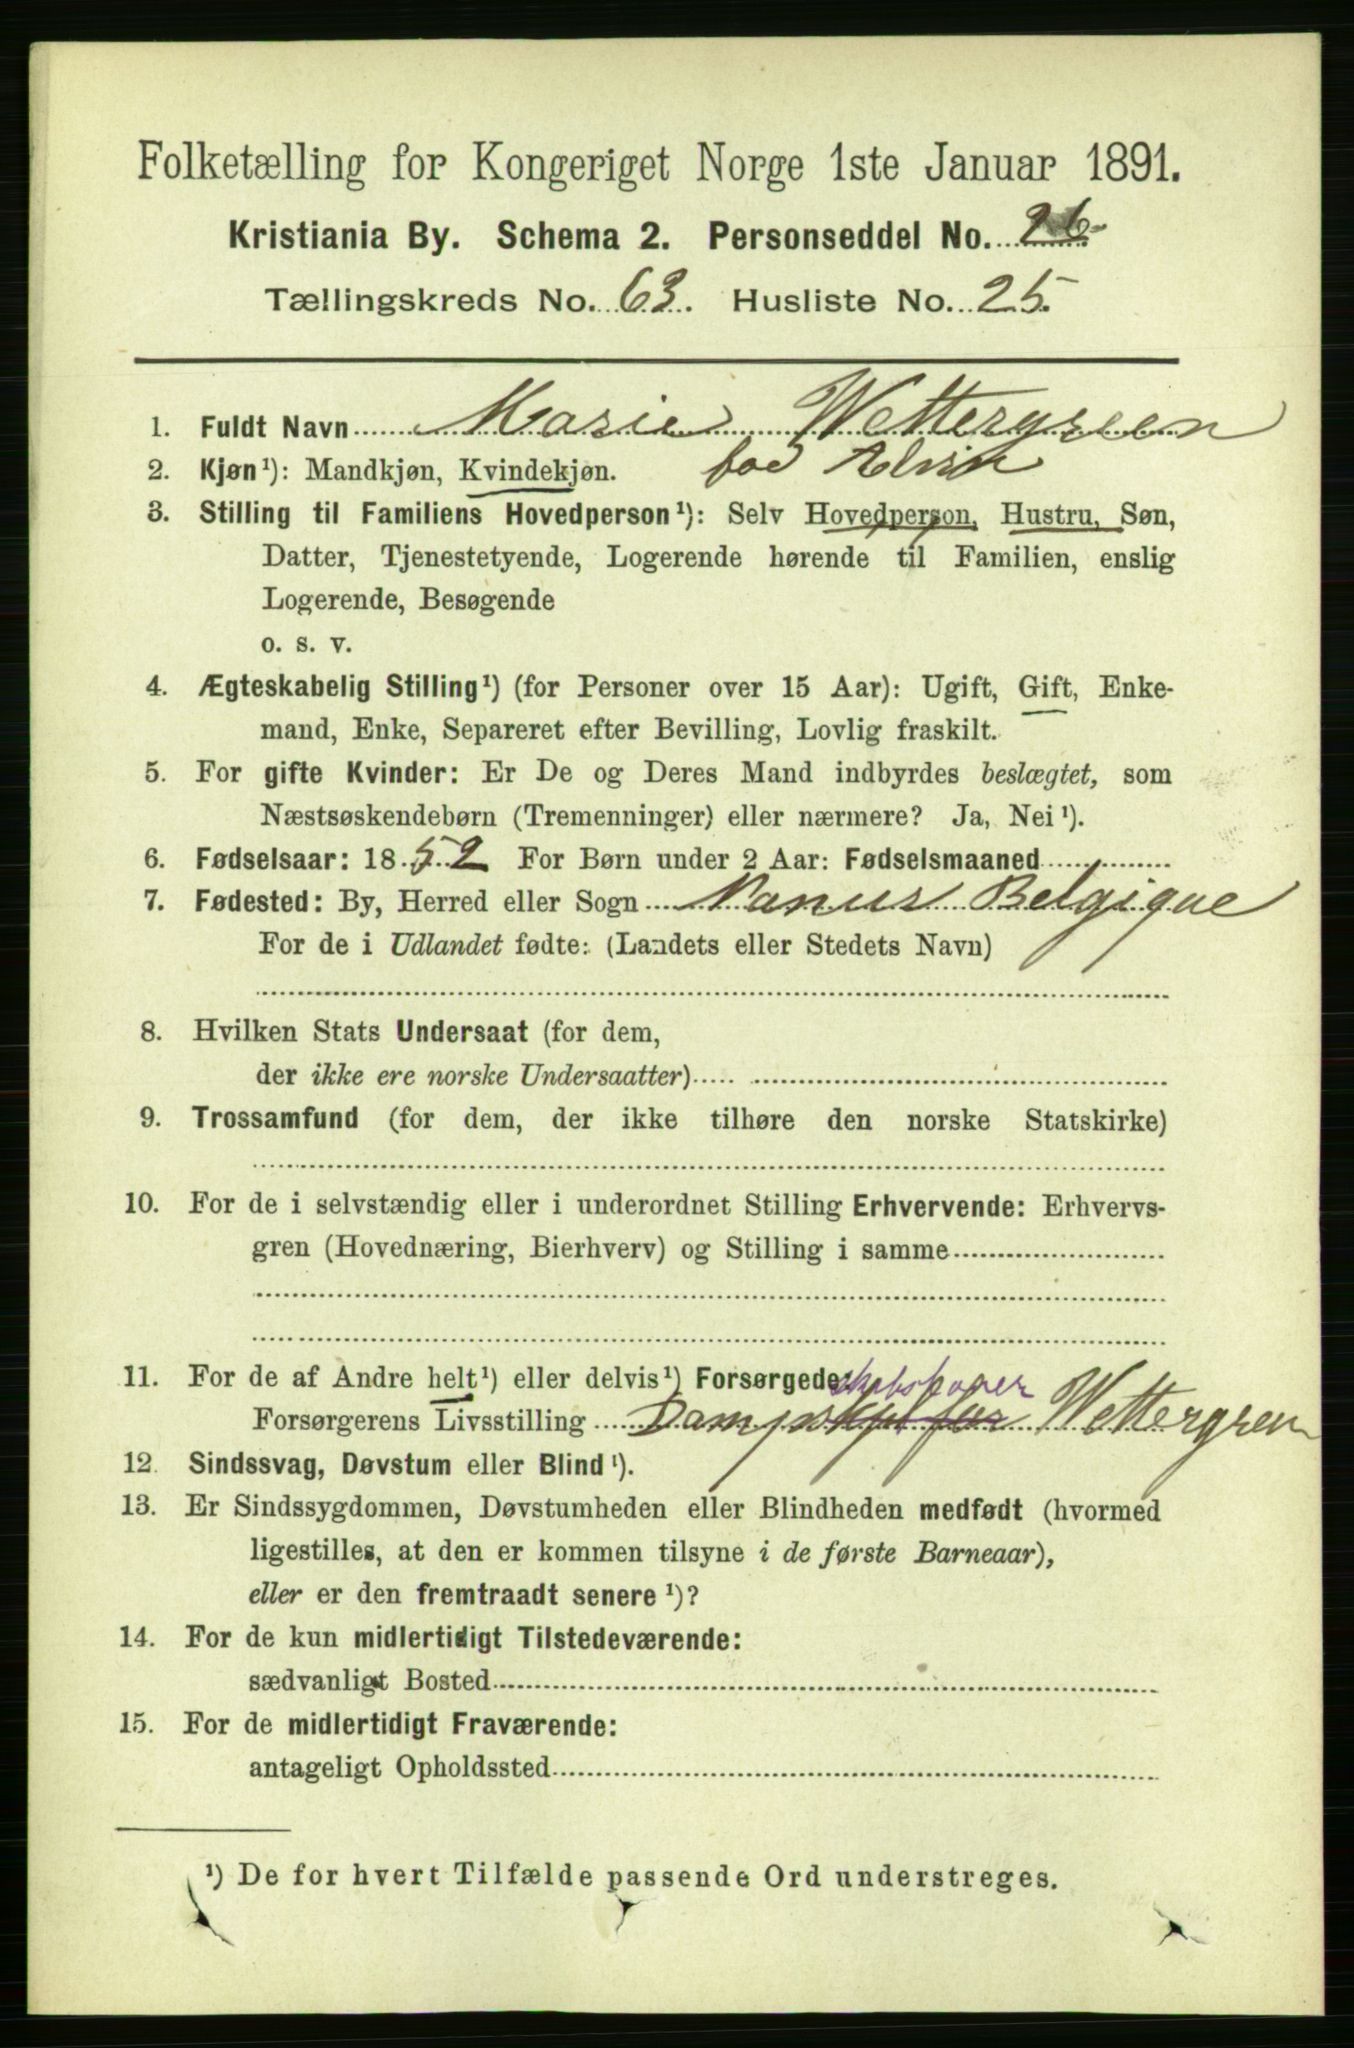 Folketælling for Kongeriget Norge 1ste Januar 1891.
Kristiania By. Schema 2. Personseddel No. 26
Tællingskreds No. 63. Husliste No. 25.
1. Fuldt Navn Marie Wettergreen
2. Kjøn¹): Mandkjøn, Kvindekjøn. fød
3. Stilling til Familiens Hovedperson¹): Selv Hovedperson, Hustru, Søn,
Datter, Tjenestetyende, Logerende hørende til Familien, enslig
Logerende, Besøgende
o. s. v.
4. Ægteskabelig Stilling¹) (for Personer over 15 Aar): Ugift, Gift, Enke-
mand, Enke, Separeret efter Bevilling, Lovlig fraskilt.
5. For gifte Kvinder: Er De og Deres Mand indbyrdes beslægtet, som
Næstsøskendebørn (Tremenninger) eller nærmere? Ja, Nei¹).
6. Fødselsaar: 1852 For Børn under 2 Aar: Fødselsmaaned
7. Fødested: By, Herred eller Sogn Belgique
For de i Udlandet fødte: (Landets eller Stedets Navn)
8. Hvilken Stats Undersaat (for dem,
der ikke ere norske Undersaatter)
9. Trossamfund (for dem, der ikke tilhøre den norske Statskirke)
10. For de i selvstændig eller i underordnet Stilling Erhvervende: Erhvervs-
gren (Hovednæring, Bierhverv) og Stilling i samme
11. For de af Andre helt¹) eller delvis¹) Forsørgede:
Forsørgerens Livsstilling Dampskpl før Wettergren
12. Sindssvag, Døvstum eller Blind¹).
13. Er Sindssygdommen, Døvstumheden eller Blindheden medfødt (hvormed
ligestilles, at den er kommen tilsyne i de første Barneaar),
eller er den fremtraadt senere¹)?
14. For de kun midlertidigt Tilstedeværende:
sædvanligt Bosted
15. For de midlertidigt Fraværende:
antageligt Opholdssted
¹) De for hvert Tilfælde passende Ord understreges.